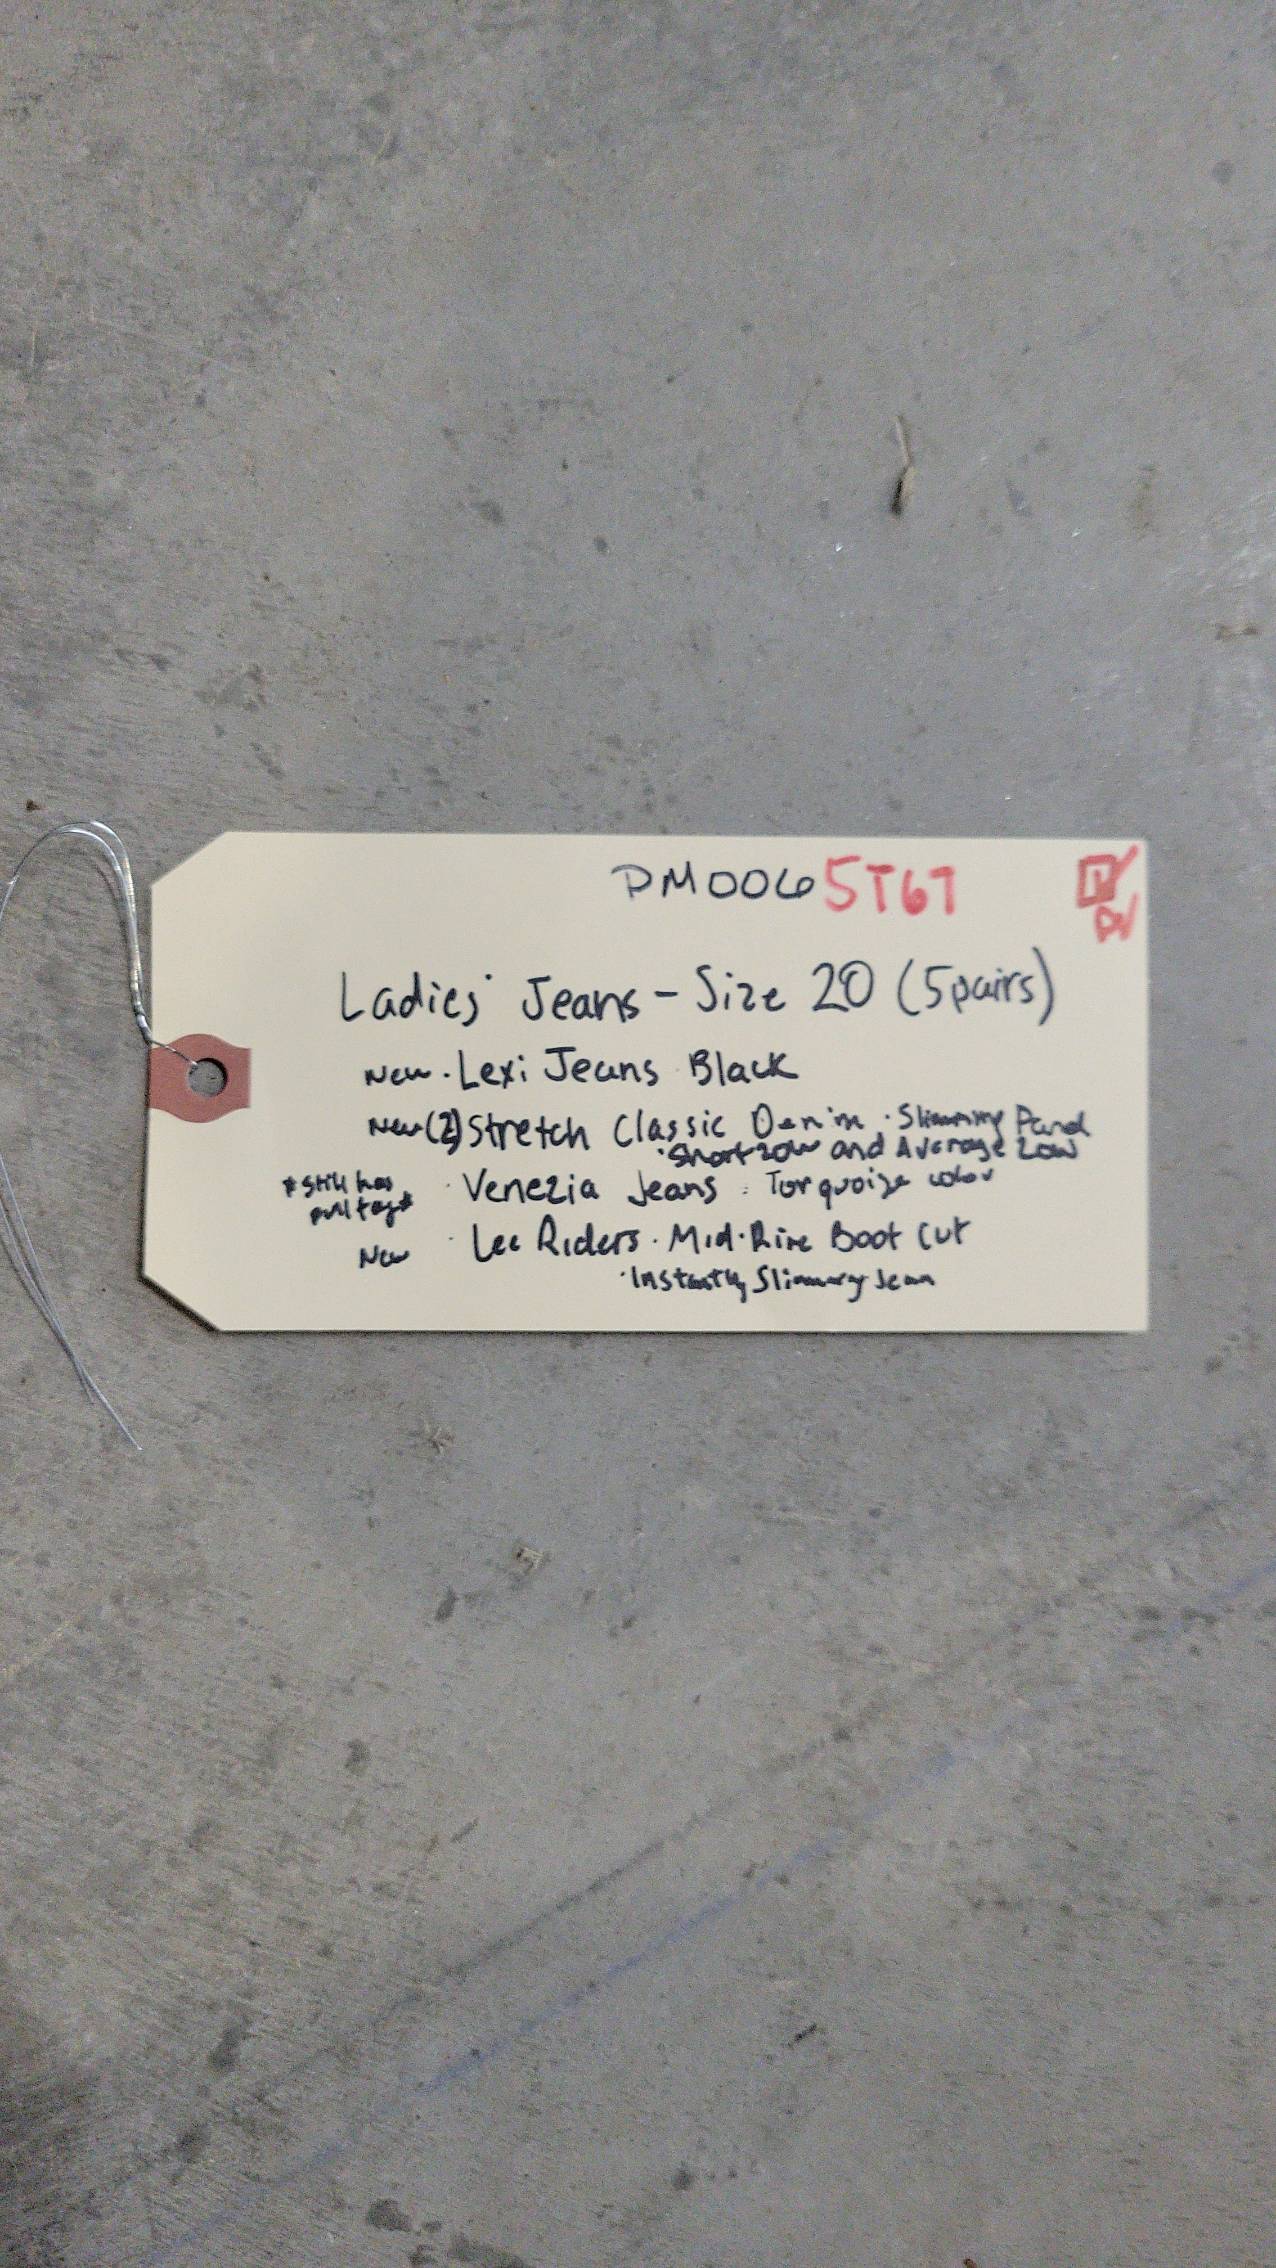 DM006 5T67
Ladies' Jeans - Size 20 (5 pairs)
New · Lexi Jeans Black
New (2) Stretch Classic Denim · Slimming Panel
· Short Low and Average Low
*Still has
pull tag*
· Venezia Jeans : Torquoise color
New · Lee Riders · Mid·Rise Boot Cut
· Instantly Slimming Jean